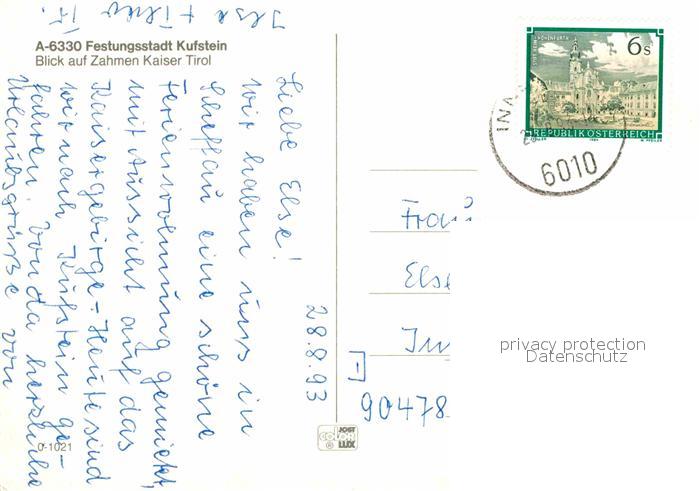 A-6330 Festungsstadt Kufstein
Blick auf Zahmen Kaiser Tirol
28.8.93
Liebe Else!
Wir haben uns in
Scheffau eine schöne
Ferienwohnung gemietet,
mit Aussicht auf das
Kaisergebirge - Heute sind
wir nach Kufstein ge-
fahren. Von da herzliche
Urlaubsgrüße von
Ilse +
0-1021
JOST
COLOR
LUX
6s
STIFT REIN-HOHENFURTH
REPUBLIK ÖSTERREICH
6010
Frau
Else
90478
privacy protection
Datenschutz